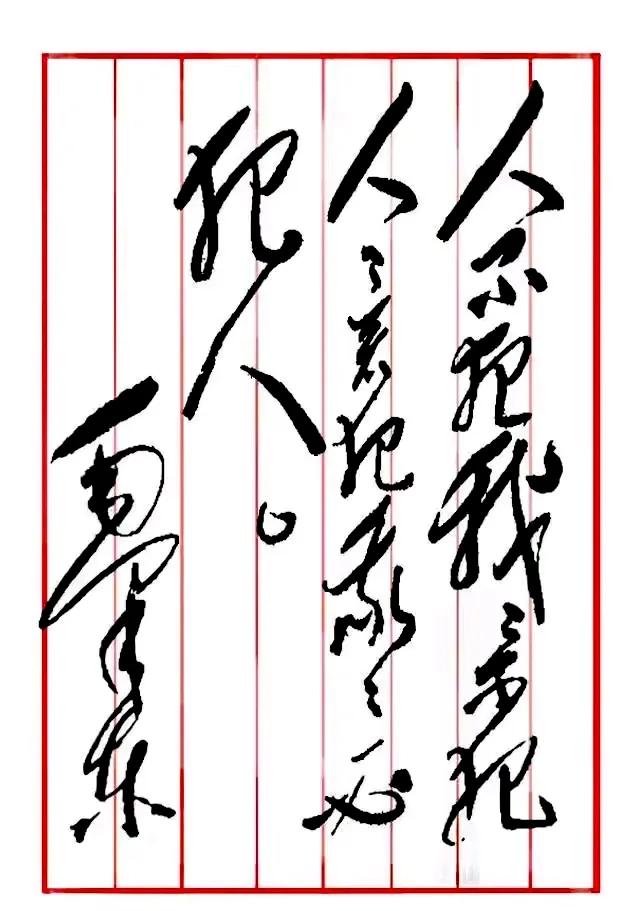 人不犯我〻不犯
人〻若犯我〻必
犯人。
毛泽东